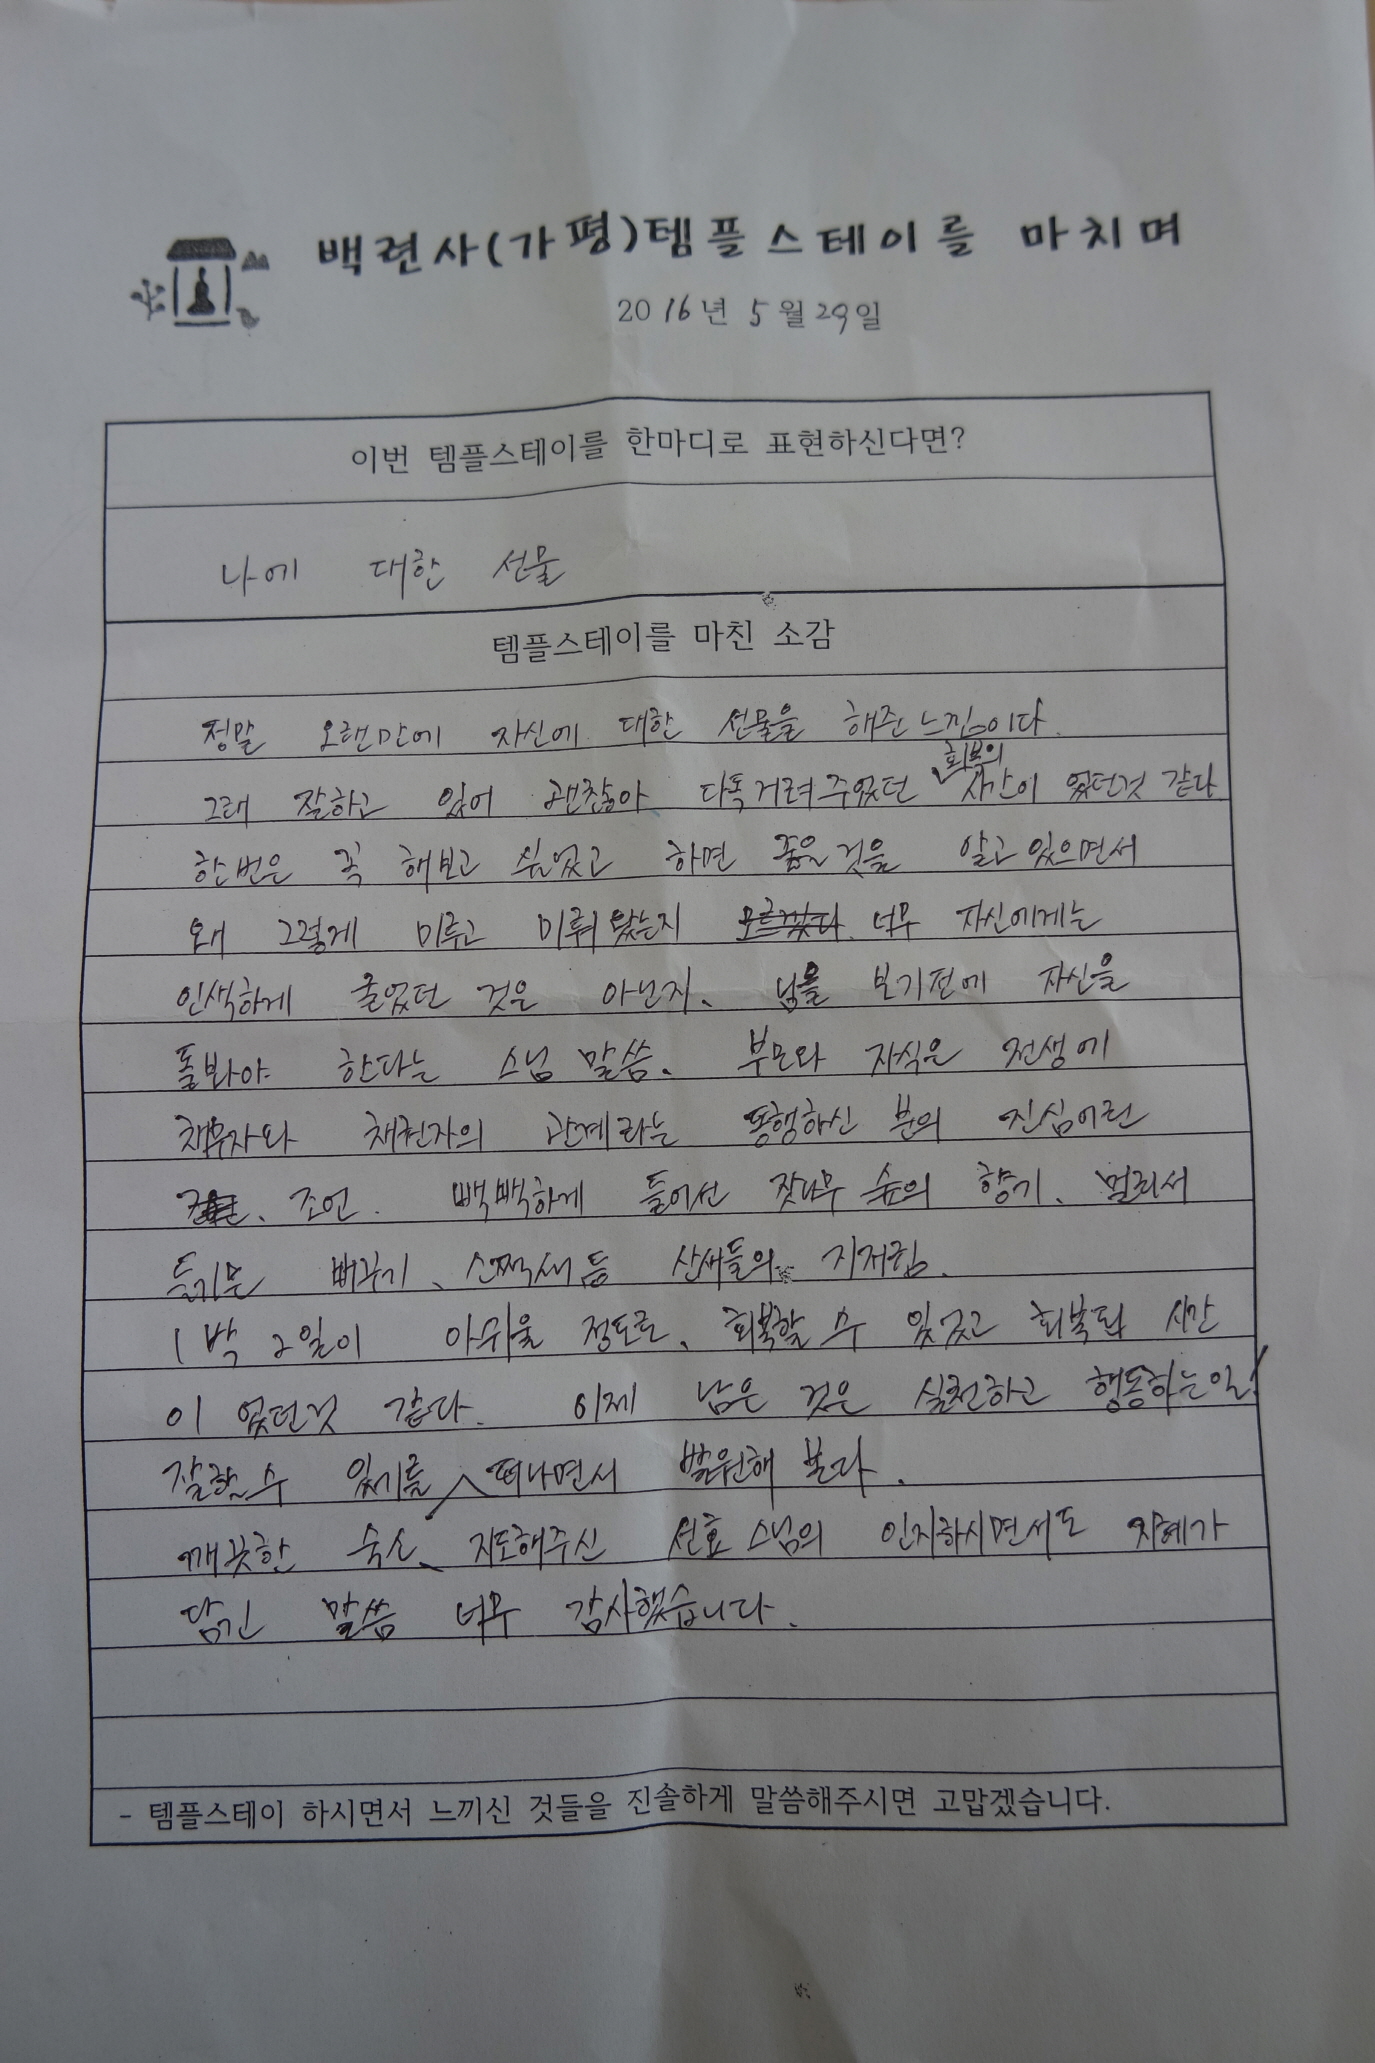 백련사(가평)템플스테이를 마치며
2016년 5월 29일
이번 템플스테이를 한마디로 표현하신다면?
나에 대한 선물
템플스테이를 마친 소감
정말 오랜만에 자신에 대한 선물을 해준 느낌이다.
그래 잘하고 있어 괜찮아 다독거려 주었던 회복의 시간이 었던것 같다
한번은 꼭 해보고 싶었고 하면 좋을것을 알고 있으면서
왜 그렇게 미루고 미뤄 왔는지 모르겠다. 너무 자신에게는
인색하게 굴었던 것은 아닌지. 남을 보기전에 자신을
돌봐야 한다는 스님 말씀. 부모와 자식은 전생에
채무자와 채권자의 관계라는 동행하신 분의 진심어린
조언. 빽빽하게 들어선 잣나무 숲의 향기. 멀리서
들리는 뻐꾸기, 소쩍새등 산새들의 지저귐.
1박 2일이 아쉬울 정도로, 회복할 수 있었고 회복된 시간
이 었던것 같다. 이제 남은 것은 실천하고 행동하는일!
잘할 수 있기를 떠나면서 발원해 본다.
깨끗한 숙소, 지도해주신 선효 스님의 인자하시면서도 지혜가
담긴 말씀 너무 감사했습니다.
- 템플스테이 하시면서 느끼신 것들을 진솔하게 말씀해주시면 고맙겠습니다.